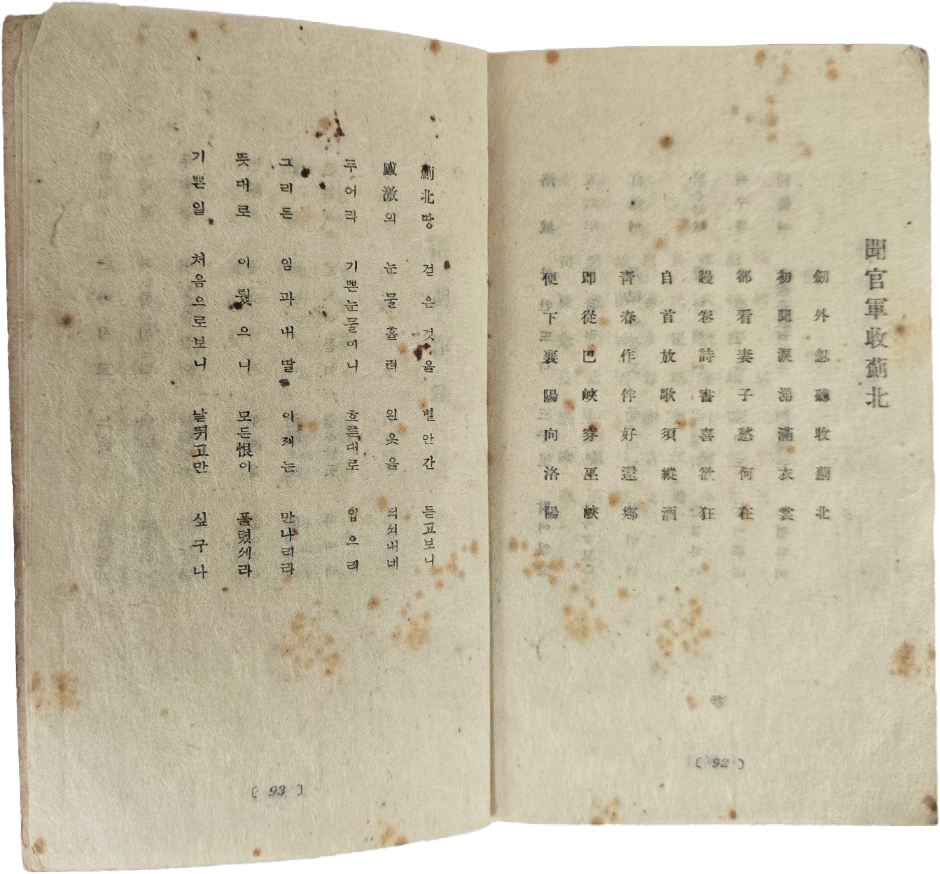 聞官軍收薊北
劒外忽聽收薊北
初聞淚滿衣裳
却看妻子愁何在
卷詩書喜欲狂
白首放歌須縱酒
青春作伴好還鄕
即從巴峽穿巫峽
便下襄陽向洛陽
〔 92 〕
薊北땅 걷은것을 별안간 듣고보니
感激의 눈물흘려 왼옷을 적셔내네
두어라 기쁜눈물이니 흐른대로 입으리
그리든 임과내딸 이제는 만나리라
뜻대로 이뤘으니 모든恨이 풀렸세라
기쁜일 처음으로보니 날뛰고만 싶구나
〔 93 〕